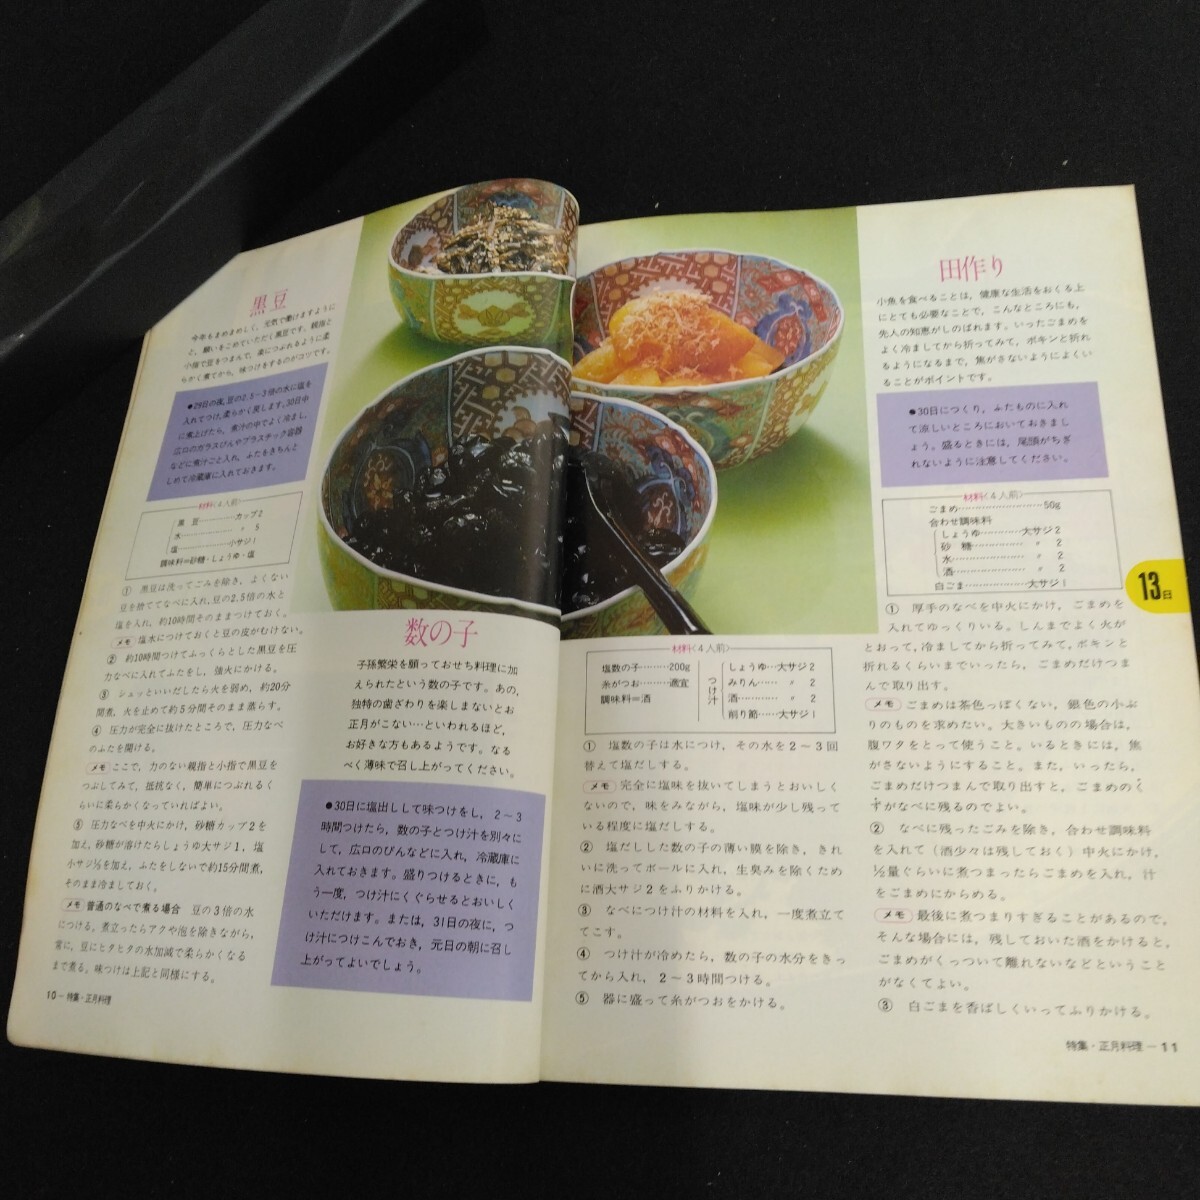 黒豆
今年もまめまめしく，元気で働けますように
と，願いをこめていただく黒豆です。親指と
小指で豆をつまんで，楽につぶれるように柔
らかく煮てから，味つけをするのがコツです。
●29日の夜，豆の2.5～3倍の水に塩を
入れてつけ，柔らかく戻します。30日中
に煮上げたら，煮汁の中でよく冷まし，
広口のガラスびんやプラスチック容器
などに煮汁ごと入れ，ふたをきちんと
しめて冷蔵庫に入れておきます。
材料〈4人前〉
黒豆…………カップ2
水…………〃 5
塩…………小サジ1
調味料=砂糖・しょうゆ・塩
① 黒豆は洗ってごみを除き，よくない
豆を捨ててなべに入れ，豆の2.5倍の水と
塩を入れ，約10時間そのままつけておく。
メモ 塩水につけておくと豆の皮がむけない。
② 約10時間つけてふっくらとした黒豆を圧
力なべに入れてふたをし，強火にかける。
③ シュッといいだしたら火を弱め，約20分
間煮，火を止めて約5分間そのまま蒸らす。
④ 圧力が完全に抜けたところで，圧力なべ
のふたを開ける。
メモ ここで，力のない親指と小指で黒豆を
つぶしてみて，抵抗なく，簡単につぶれるく
らいに柔らかくなっていればよい。
⑤ 圧力なべを中火にかけ，砂糖カップ2を
加え，砂糖が溶けたらしょうゆ大サジ1，塩
小サジ⅓を加え，ふたをしないで約15分間煮，
そのまま冷ましておく。
メモ 普通のなべで煮る場合 豆の3倍の水
につける。煮立ったらアクや泡を除きながら，
常に，豆にヒタヒタの水加減で柔らかくなる
まで煮る。味つけは上記と同様にする。
10－特集・正月料理
数の子
子孫繁栄を願っておせち料理に加
えられたという数の子です。あの，
独特の歯ざわりを楽しまないとお
正月がこない…といわれるほど，
お好きな方もあるようです。なる
べく薄味で召し上がってください。
●30日に塩出しして味つけをし，2～3
時間つけたら，数の子とつけ汁を別々に
して，広口のびんなどに入れ，冷蔵庫に
入れておきます。盛りつけるときに，も
う一度，つけ汁にくぐらせるとおいしく
いただけます。または，31日の夜に，つ
け汁につけこんでおき，元日の朝に召し
上がってよいでしょう。
材料〈4人前〉
塩数の子………200g
糸がつお………適宜
調味料=酒
つけ汁
しょうゆ…大サジ2
みりん……〃 2
酒…………〃 2
削り節……大サジ1
① 塩数の子は水につけ，その水を2～3回
替えて塩だしする。
メモ 完全に塩味を抜いてしまうとおいしく
ないので，味をみながら，塩味が少し残って
いる程度に塩だしする。
② 塩だしした数の子の薄い膜を除き，きれ
いに洗ってボールに入れ，生臭みを除くため
に酒大サジ2をふりかける。
③ なべにつけ汁の材料を入れ，一度煮立て
てこす。
④ つけ汁が冷めたら，数の子の水分をきっ
てから入れ，2～3時間つける。
⑤ 器に盛って糸がつおをかける。
田作り
小魚を食べることは，健康な生活をおくる上
にとても必要なことで，こんなところにも，
先人の知恵がしのばれます。いったごまめを
よく冷ましてから折ってみて，ポキンと折れ
るようになるまで，焦がさないようによくい
ることがポイントです。
●30日につくり，ふたものに入れ
て涼しいところにおいておきまし
ょう。盛るときには，尾頭がちぎ
れないように注意してください。
材料〈4人前〉
ごまめ…………………50g
合わせ調味料
しょうゆ…………大サジ2
砂糖……………〃 2
水………………〃 2
酒………………〃 2
白ごま……………大サジ1
① 厚手のなべを中火にかけ，ごまめを
入れてゆっくりいる。しんまでよく火が
とおって，冷ましてから折ってみて，ポキンと
折れるくらいまでいったら，ごまめだけつま
んで取り出す。
メモ ごまめは茶色っぽくない，銀色の小ぶ
りのものを求めたい。大きいものの場合は，
腹ワタをとって使うこと。いるときには，焦
がさないようにすること。また，いったら，
ごまめだけつまんで取り出すと，ごまめのく
ずがなべに残るのでよい。
② なべに残ったごみを除き，合わせ調味料
を入れて（酒少々は残しておく）中火にかけ，
½量ぐらいに煮つまったらごまめを入れ，汁
をごまめにからめる。
メモ 最後に煮つまりすぎることがあるので，
そんな場合には，残しておいた酒をかけると，
ごまめがくっついて離れないなどということ
がなくてよい。
③ 白ごまを香ばしくいってふりかける。
13日
特集・正月料理－11